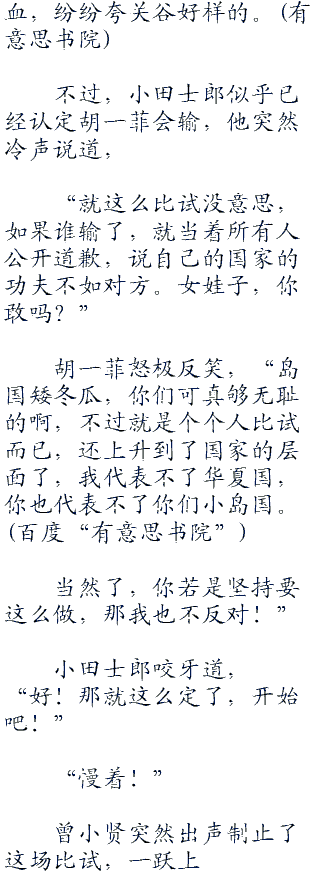 血，纷纷夸关谷好样的。(有
意思书院)
不过，小田士郎似乎已
经认定胡一菲会输，他突然
冷声说道，
“就这么比试没意思，
如果谁输了，就当着所有人
公开道歉，说自己的国家的
功夫不如对方。女娃子，你
敢吗？”
胡一菲怒极反笑，“岛
国矮冬瓜，你们可真够无耻
的啊，不过就是个个人比试
而已，还上升到了国家的层
面了，我代表不了华夏国，
你也代表不了你们小岛国。
(百度“有意思书院”)
当然了，你若是坚持要
这么做，那我也不反对！”
小田士郎咬牙道，
“好！那就这么定了，开始
吧！”
“慢着！”
曾小贤突然出声制止了
这场比试，一跃上